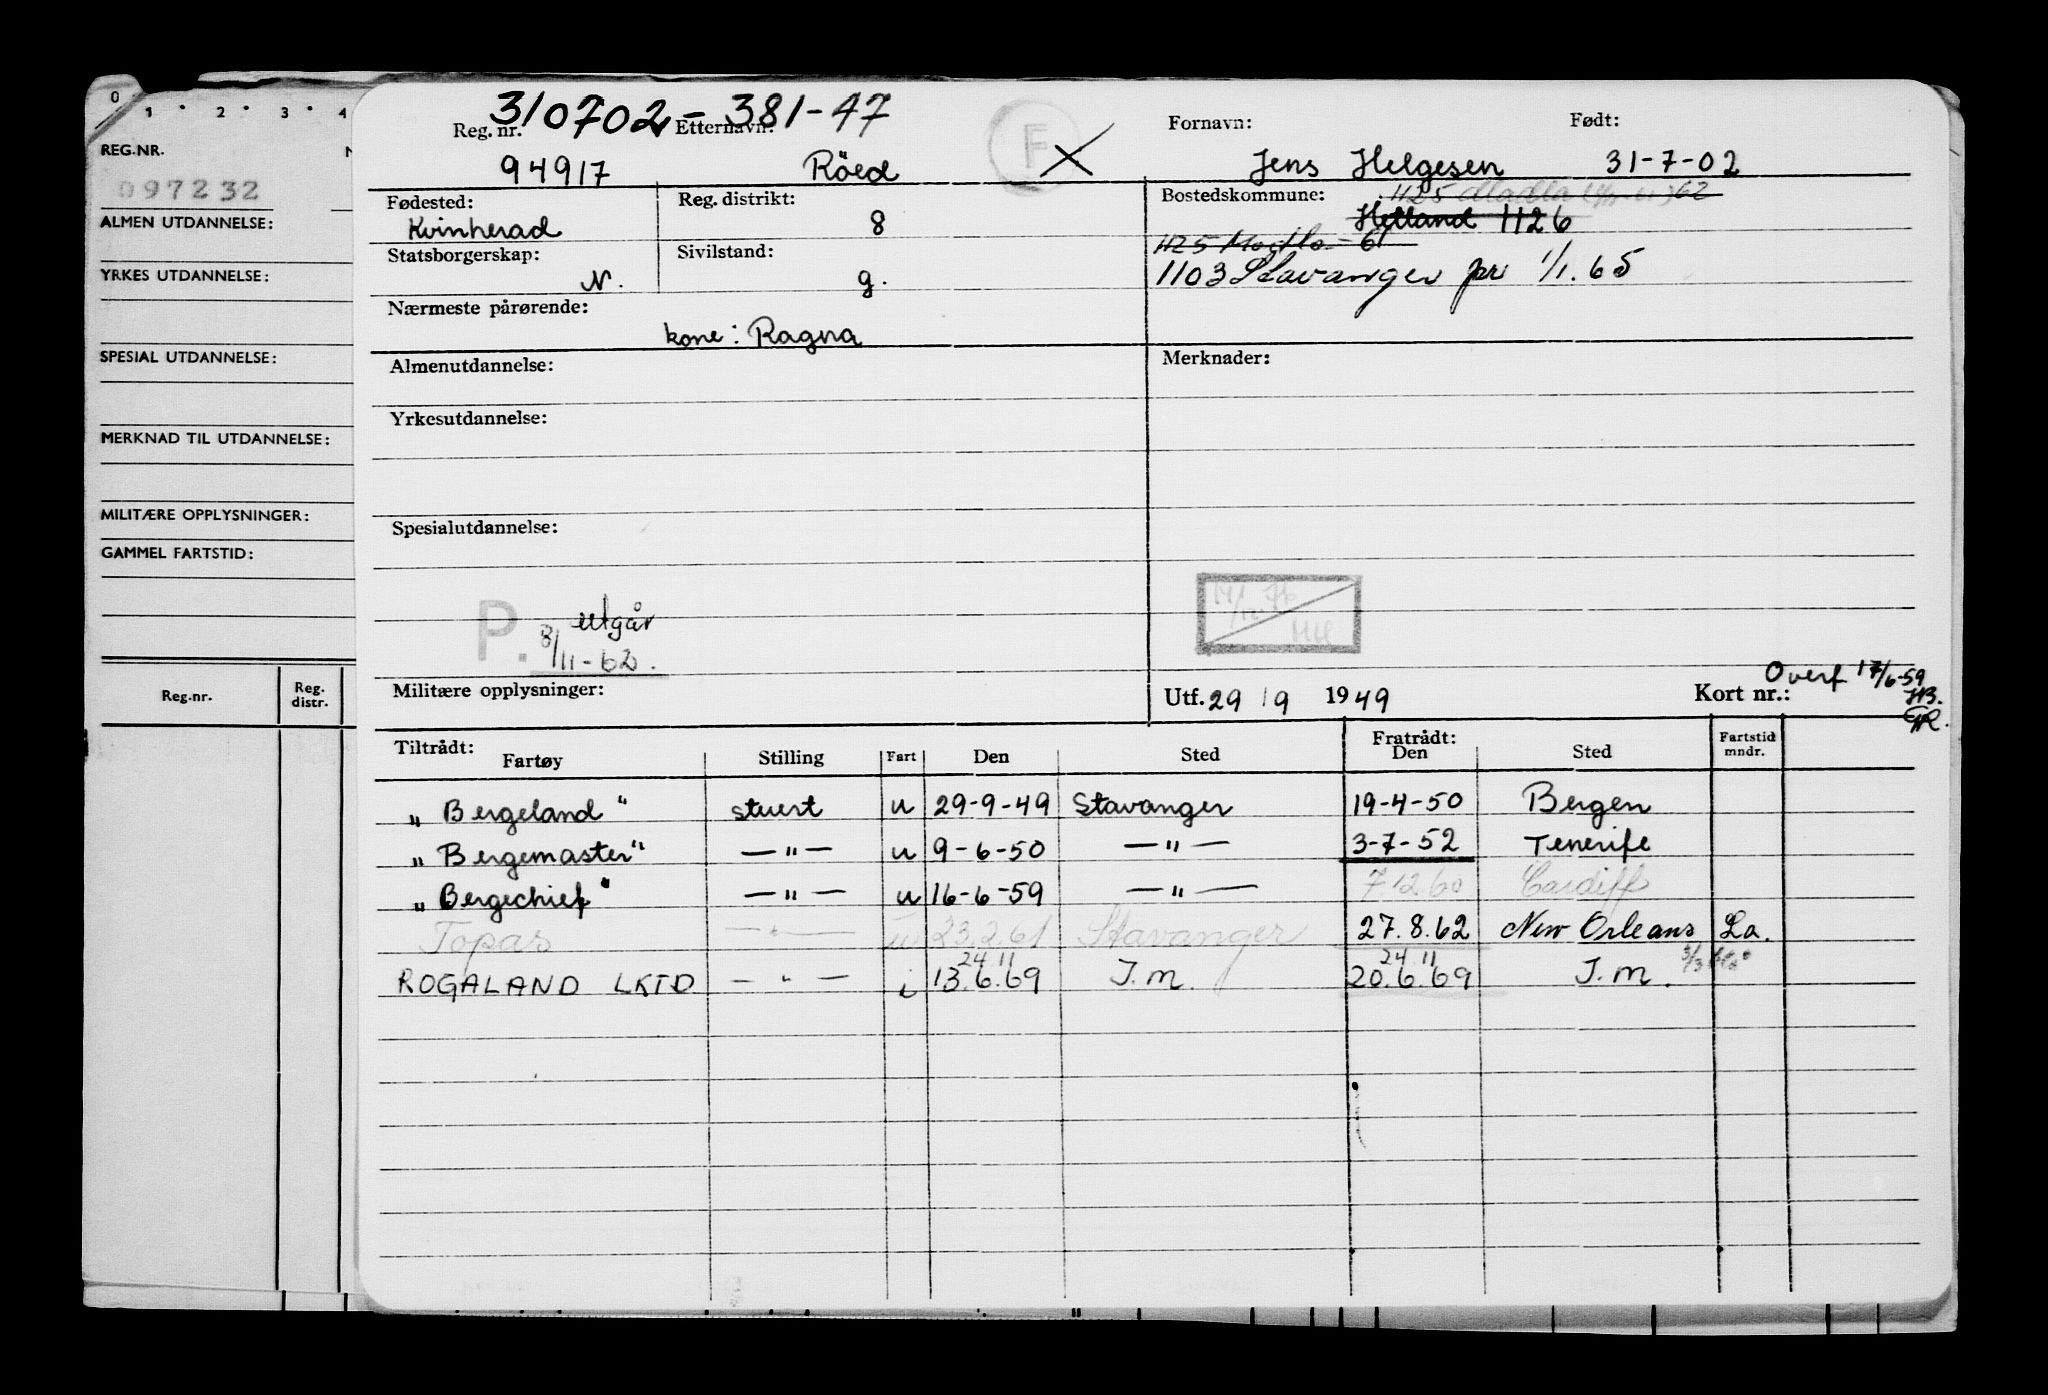 0 1 2 3 4
REG.NR.
097232
ALMEN UTDANNELSE:
YRKES UTDANNELSE:
SPESIAL UTDANNELSE:
MERKNAD TIL UTDANNELSE:
MILITÆRE OPPLYSNINGER:
GAMMEL FARTSTID:
Reg.nr. Reg. distr.
310702 - 381-47
Reg. nr. Etternavn: F Fornavn: Født:
94917 Röed X Jens Helgesen 31-7-02
Fødested: Reg. distrikt: Bostedskommune: 1125 Madla 62
Kvinherad 8 Hetland 1126
1125 Madla - 61
Statsborgerskap: Sivilstand:
N. g. 1103 Stavanger pr 1/1.65
Nærmeste pårørende:
kone: Ragna
Almenutdannelse: Merknader:
Yrkesutdannelse:
Spesialutdannelse:
P. utgår
8/11-62.
Militære opplysninger: Utf. 29/9 1949 Kort nr.: Overf 17/6-59
HB.
Tiltrådt: Fratrådt:
Fartøy Stilling Fart Den Sted Den Sted Fartstid mndr.
"Bergeland" stuert u 29-9-49 Stavanger 19-4-50 Bergen
"Bergemaster" —"— u 9-6-50 —"— 3-7-52 Tenerife
"Bergechief" —"— u 16-6-59 —"— 7.12.60 Cardiff
Topas —"— u 23.2.61 Stavanger 27.8.62 New Orleans La.
24 11 24 11
ROGALAND LKTD —"— i 13.6.69 J.m. 20.6.69 J.m.